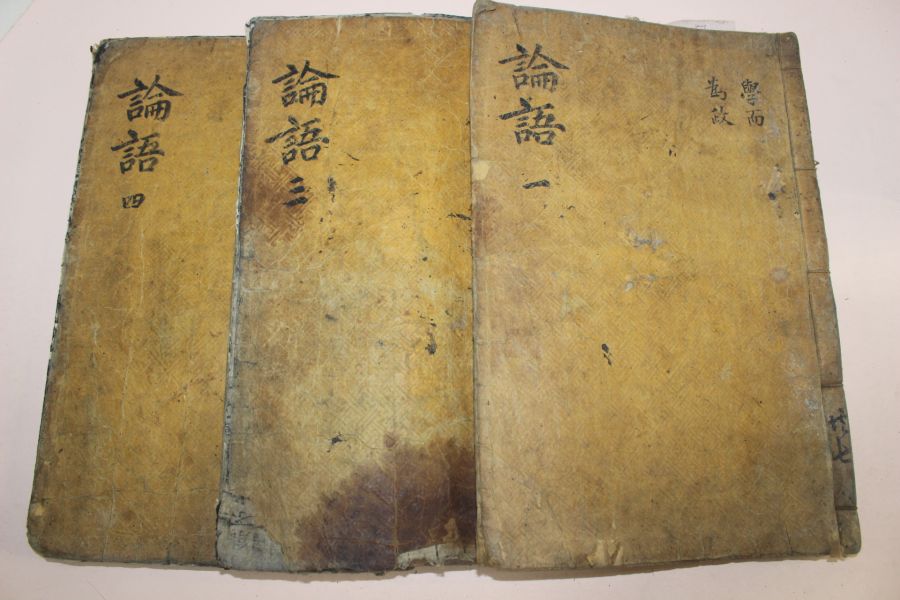 論語
四
論語
三
論語
一
學而
為政
共七